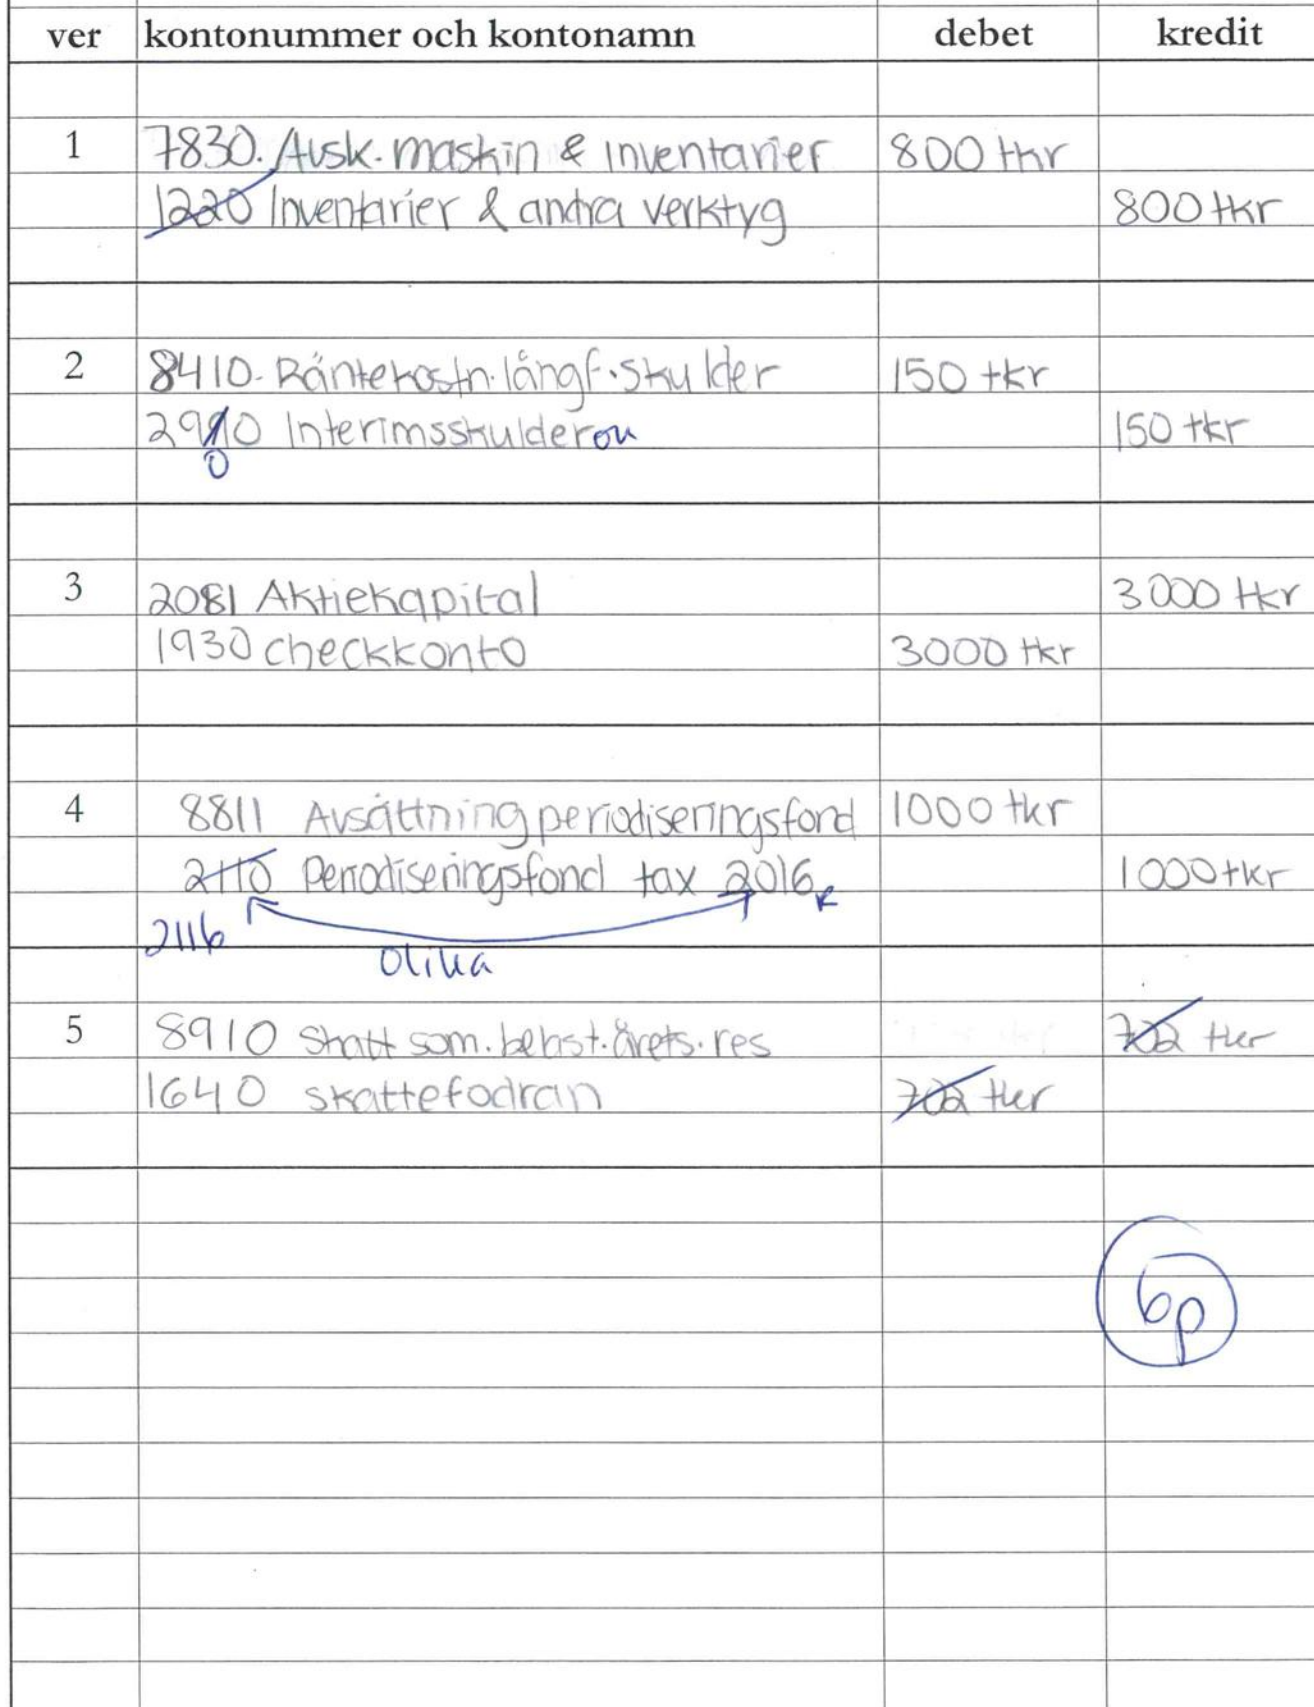 ver kontonummer och kontonamn debet kredit
1 7830. Avsk. maskin & inventarier 800 tkr
1220 Inventarier & andra verktyg 800 tkr
2 8410. Räntekostn. långf. skulder 150 tkr
2910 Interimsskulder ou 150 tkr
0
3 2081 Aktiekapital 3000 tkr
1930 checkkonto 3000 tkr
4 8811 Avsättning periodiseringsfond 1000 tkr
2110 Periodiseringsfond tax 2016 1000 tkr
2116
Olika
5 8910 Skatt som. belast. årets. res 702 tkr
1640 skattefodran 702 tkr
6p